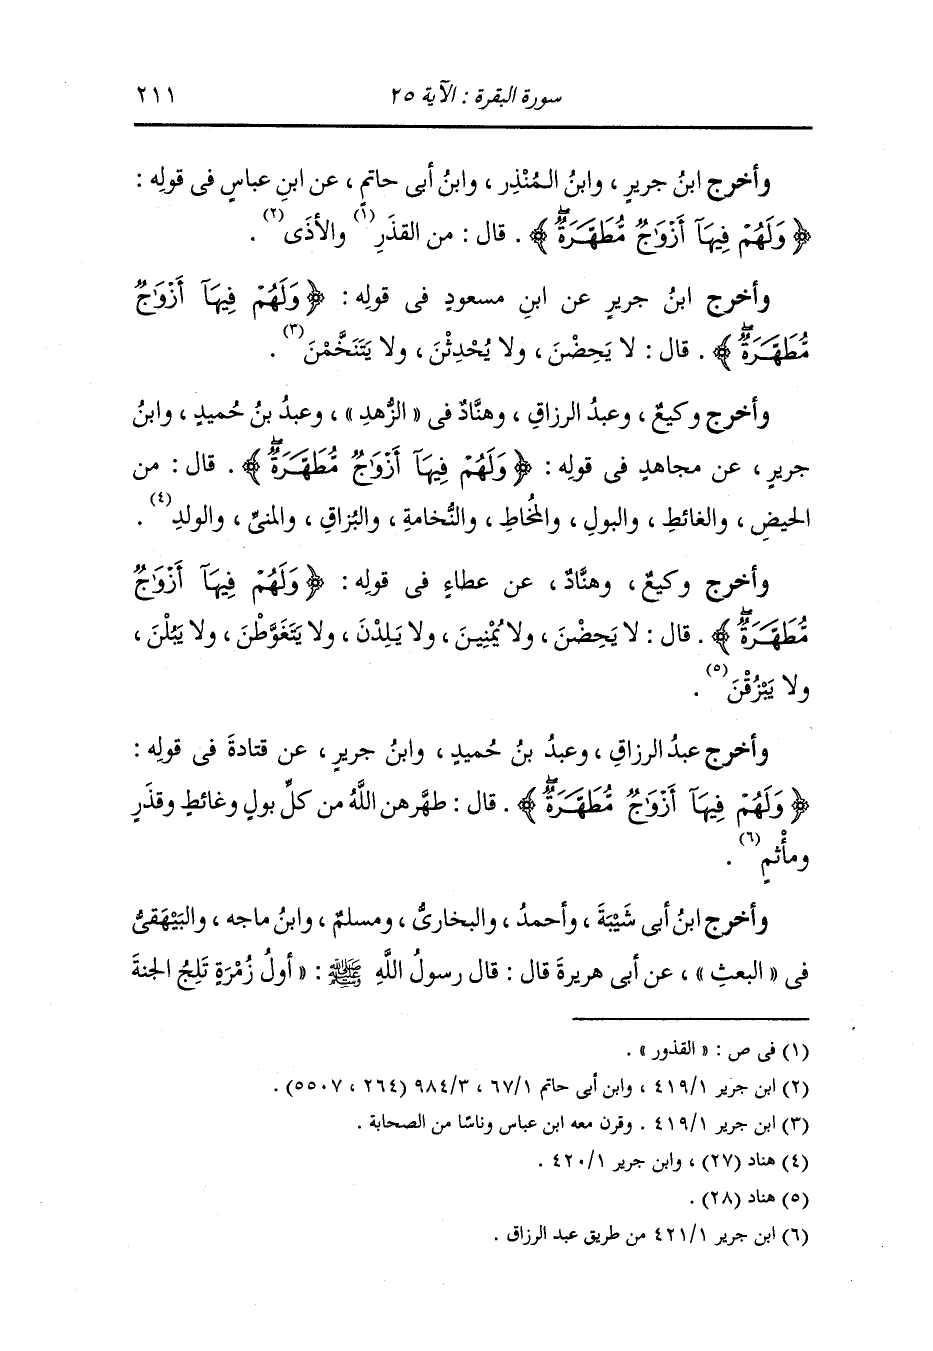 سورة البقرة : الآية ٢٥ ٢١١
وأخرج ابنُ جريرٍ ، وابنُ المُنْذِرِ ، وابنُ أبى حاتمٍ ، عن ابنِ عباسٍ فى قولِه :
﴿ وَلَهُمْ فِيهَآ أَزْوَٰجٌ مُّطَهَّرَةٌۖ ﴾ . قال : من القذَرِ(١) والأذَى(٢) .
وأخرج ابنُ جريرٍ عن ابنِ مسعودٍ فى قولِه : ﴿ وَلَهُمْ فِيهَآ أَزْوَٰجٌ
مُّطَهَّرَةٌۖ ﴾ . قال : لا يَحِضْنَ ، ولا يُحْدِثْنَ ، ولا يَتَنَخَّمْنَ(٣) .
وأخرج وكيعٌ ، وعبدُ الرزاقِ ، وهنَّادٌ فى « الزُّهدِ » ، وعبدُ بنُ حُميدٍ ، وابنُ
جريرٍ ، عن مجاهدٍ فى قولِه : ﴿ وَلَهُمْ فِيهَآ أَزْوَٰجٌ مُّطَهَّرَةٌۖ ﴾ . قال : من
الحيضِ ، والغائطِ ، والبولِ ، والمُخاطِ ، والنُّخامةِ ، والبُزاقِ ، والمنىِّ ، والولدِ(٤) .
وأخرج وكيعٌ ، وهنَّادٌ ، عن عطاءٍ فى قولِه : ﴿ وَلَهُمْ فِيهَآ أَزْوَٰجٌ
مُّطَهَّرَةٌۖ ﴾ . قال : لا يَحِضْنَ ، ولا يُمْنِينَ ، ولا يَلِدْنَ ، ولا يَتَغَوَّطْنَ ، ولا يَبُلْنَ ،
ولا يَبْزُقْنَ(٥) .
وأخرج عبدُ الرزاقِ ، وعبدُ بنُ حُميدٍ ، وابنُ جريرٍ ، عن قتادةَ فى قولِه :
﴿ وَلَهُمْ فِيهَآ أَزْوَٰجٌ مُّطَهَّرَةٌۖ ﴾ . قال : طهَّرهن اللَّهُ من كلِّ بولٍ وغائطٍ وقذَرٍ
ومأْثمٍ(٦) .
وأخرج ابنُ أبى شَيْبَةَ ، وأحمدُ ، والبخارىُّ ، ومسلمٌ ، وابنُ ماجه ، والبَيْهَقىُّ
فى « البعثِ » ، عن أبى هريرةَ قال : قال رسولُ اللَّهِ ﷺ : « أولُ زُمْرَةٍ تَلِجُ الجنةَ
(١) فى ص : « القذور » .
(٢) ابن جرير ٤١٩/١ ، وابن أبى حاتم ٦٧/١ ، ٩٨٤/٣ (٢٦٤ ، ٥٥٠٧) .
(٣) ابن جرير ٤١٩/١ . وقرن معه ابن عباس وناسًا من الصحابة .
(٤) هناد (٢٧) ، وابن جرير ٤٢٠/١ .
(٥) هناد (٢٨) .
(٦) ابن جرير ٤٢١/١ من طريق عبد الرزاق .